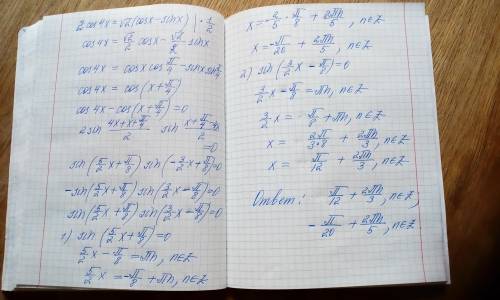 2cos4x = √2(cosx − sinx) | · 1/2
cos4x = √2/2 cosx − √2/2 sinx
cos4x = cosx cos π/4 − sinx sin π/4
cos4x = cos(x + π/4)
cos4x − cos(x + π/4) = 0
2sin (4x + x + π/4)/2 sin (x + π/4 − 4x)/2 = 0
sin(5/2 x + π/8) sin(−3/2 x + π/8) = 0
−sin(5/2 x + π/8) sin(3/2 x − π/8) = 0
sin(5/2 x + π/8) sin(3/2 x − π/8) = 0
1) sin(5/2 x + π/8) = 0
5/2 x − π/8 = πn, n∈Z
5/2 x = −π/8 + πn, n∈Z
x = −2/5 · π/8 + 2πn/5, n∈Z
x = −π/20 + 2πn/5, n∈Z
2) sin(3/2 x − π/8) = 0
3/2 x − π/8 = πn, n∈Z
3/2 x = π/8 + πn, n∈Z
x = 2π/3·8 + 2πn/3, n∈Z
x = π/12 + 2πn/3, n∈Z
Ответ: π/12 + 2πn/3, n∈Z;
−π/20 + 2πn/5, n∈Z